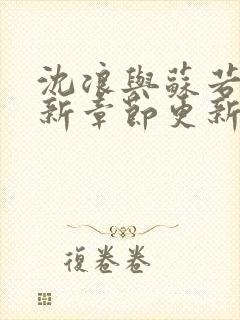 沈浪與蘇若
新章節更新
復卷卷